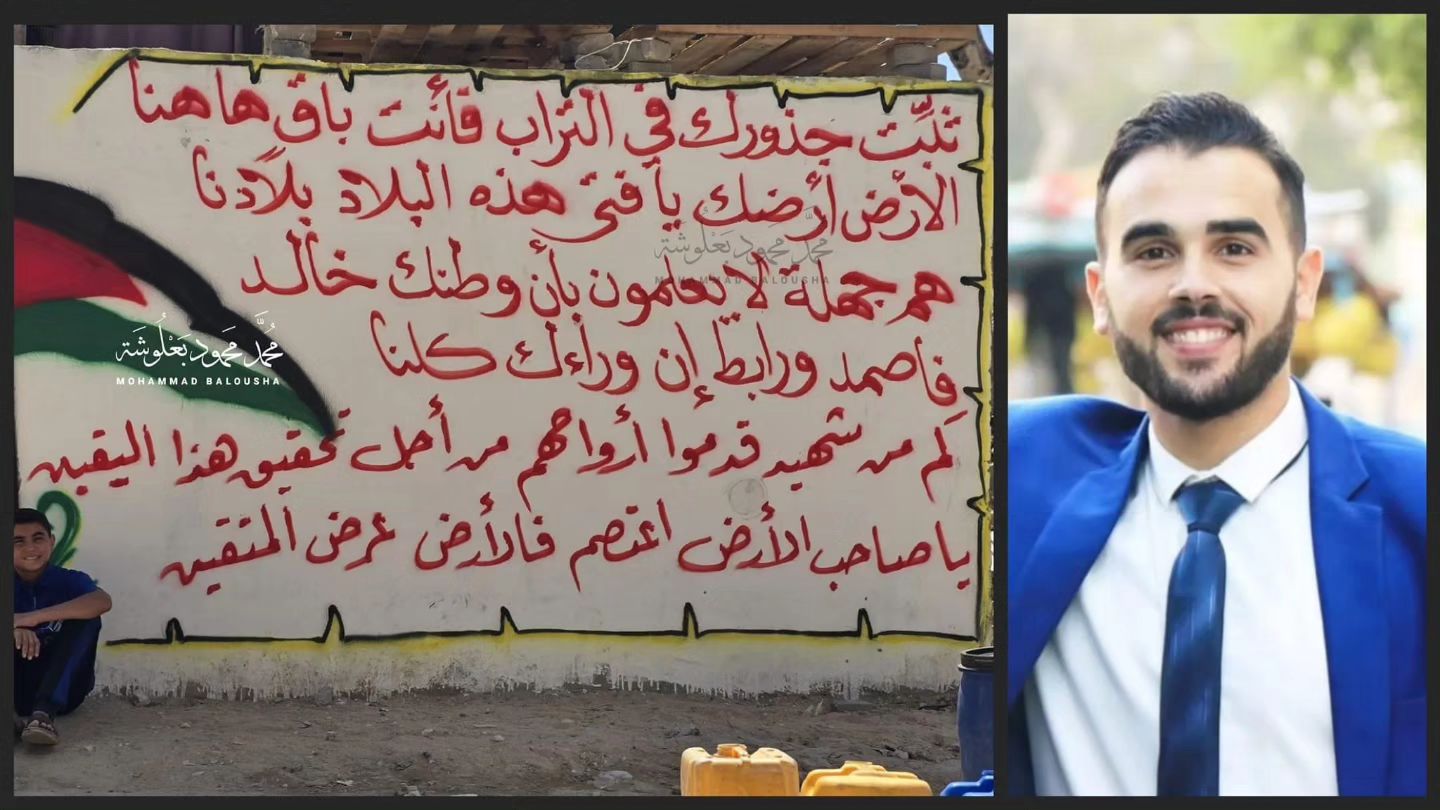 ثَبِّت جذورك في التراب فأنت باقٍ هاهنا
الأرض أرضك يا فتى هذه البلاد بلادنا
هم جهلة لا يعلمون بأن وطنك خالد
فاصمد ورابط إن وراءك كلنا
كم من شهيد قدموا أرواحهم من أجل تحقيق هذا اليقين
يا صاحب الأرض اعتصم فالأرض عرض المتقين
محمد محمود بعلوشة
MOHAMMAD BALOUSHA
محمد محمود بعلوشة
MOHAMMAD BALOUSHA